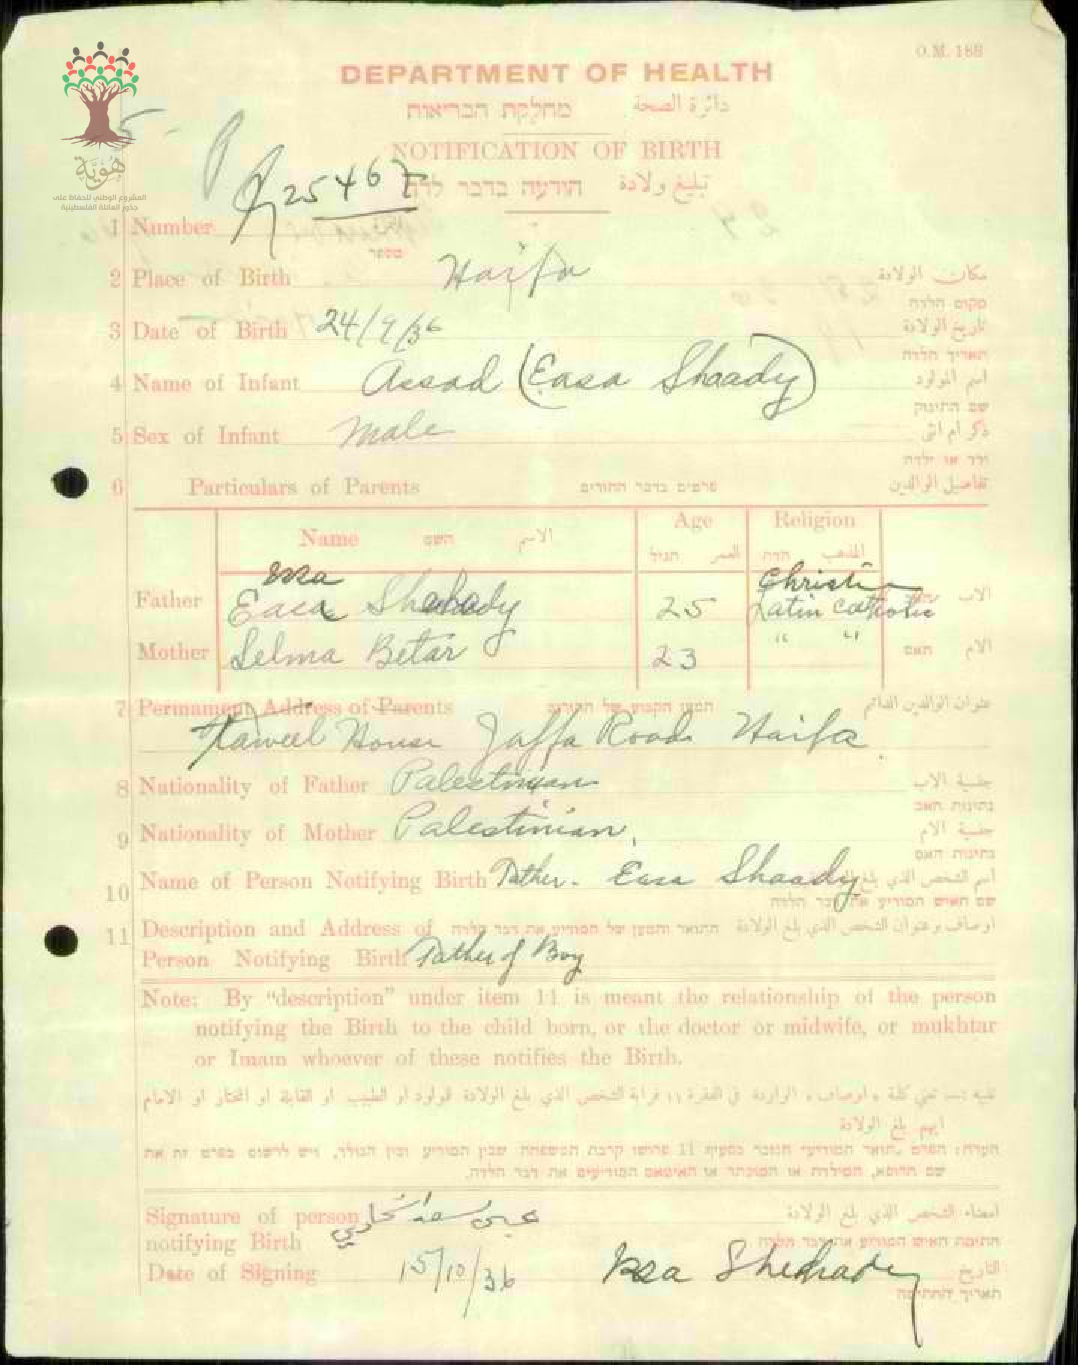 O.M. 188
DEPARTMENT OF HEALTH
מחלקת הבריאות دائرة الصحة
NOTIFICATION OF BIRTH
הודעה בדבר לדה تبليغ ولادة
هُوِيَّة
المشروع الوطني للحفاظ على
جذور العائلة الفلسطينية
25467
1 Number
מספר
2 Place of Birth Haifa مكان الولادة
מקום הלדה
3 Date of Birth 24/9/36 تاريخ الولادة
תאריך הלדה
4 Name of Infant Assad (Easa Shaady) اسم المولود
שם התינוק
5 Sex of Infant Male ذكر ام انثى
ילד או ילדה
6 Particulars of Parents פרטים בדבר ההורים تفاصيل الوالدين
Name השם الاسم Age הגיל العمر Religion הדת المذهب
Issa Christian
Father Easa Shahady 25 Latin Catholic الاب
Mother Selma Betar 23 " " האם الام
7 Permanent Address of Parents המען הקבוע של ההורים عنوان الوالدين الدائم
Taweel House Jaffa Road Haifa
8 Nationality of Father Palestinian جنسية الاب
נתינות האב
9 Nationality of Mother Palestinian جنسية الام
נתינות האם
10 Name of Person Notifying Birth Father. Easa Shaady اسم الشخص الذي بلغ الولادة
שם האיש המודיע את דבר הלדה
11 Description and Address of התואר והמען של המודיע את דבר הלדה اوصاف وعنوان الشخص الذي بلغ الولادة
Person Notifying Birth Father of Boy
Note: By “description” under item 11 is meant the relationship of the person
notifying the Birth to the child born, or the doctor or midwife, or mukhtar
or Imam whoever of these notifies the Birth.
تنبيه :— تعني كلمة « اوصاف » الواردة في الفقرة ١١ قرابة الشخص الذي بلغ الولادة للولود او الطبيب او القابلة او المختار او الامام
ايهم بلغ الولادة
הערה: הפרט „תואר המודיע״ הנזכר בסעיף 11 פרושו קרבת המשפחה שבין המודיע ובין הנולד, ויש לרשום בפרט זה את
שם הרופא, המילדת או המוכתר או האימאם המודיעים את דבר הלדה.
Signature of person امضاء الشخص الذي بلغ الولادة
notifying Birth חתימת האיש המודיע את דבר הלדה
Date of Signing 15/10/36 Issa Shehady التاريخ
תאריך החתימה